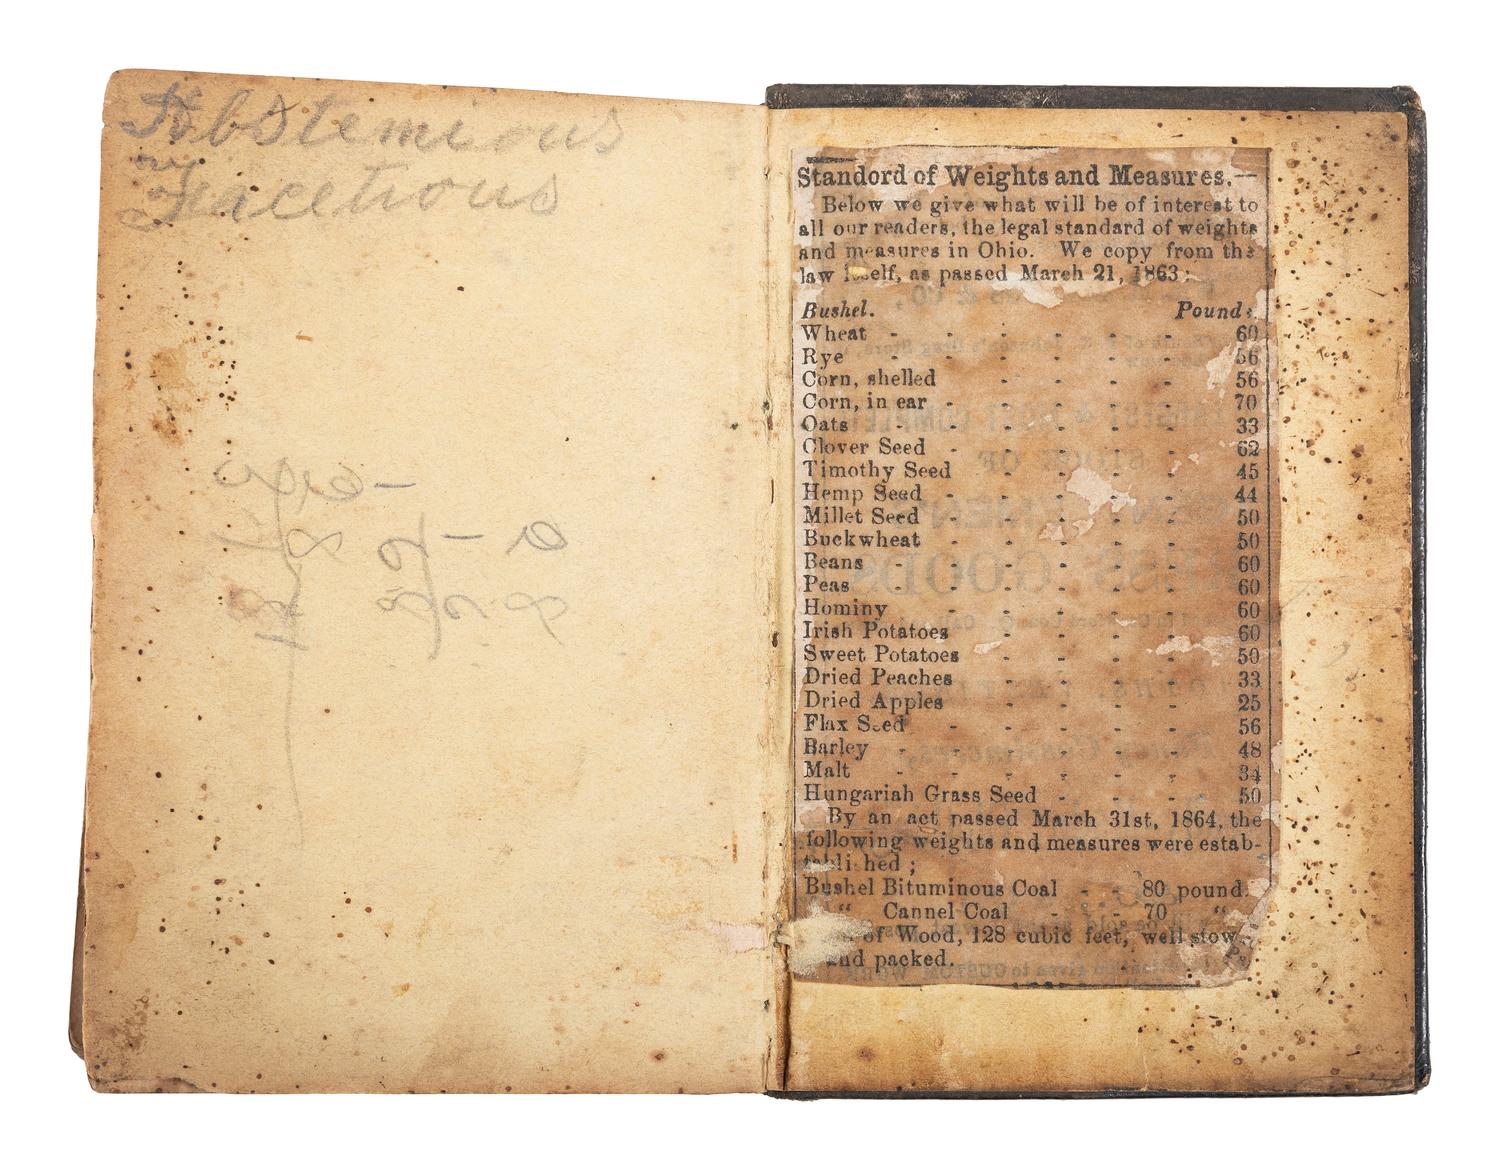 Abstemious
Facetious
Standord of Weights and Measures.—
Below we give what will be of interest to
all our readers, the legal standard of weights
and measures in Ohio. We copy from the
law itself, as passed March 21, 1863:
Bushel. Pounds.
Wheat - - - - - - 60
Rye - - - - - - 56
Corn, shelled - - - - 56
Corn, in ear - - - - - 70
Oats - - - - - - 33
Clover Seed - - - - - 62
Timothy Seed - - - - 45
Hemp Seed - - - - - 44
Millet Seed - - - - - 50
Buckwheat - - - - - 50
Beans - - - - - 60
Peas - - - - - - 60
Hominy - - - - - 60
Irish Potatoes - - - - 60
Sweet Potatoes - - - - 50
Dried Peaches - - - - 33
Dried Apples - - - - 25
Flax Seed - - - - - 56
Barley - - - - - - 48
Malt - - - - - - 34
Hungariah Grass Seed - - - 50
By an act passed March 31st, 1864, the
following weights and measures were estab-
tablished;
Bushel Bituminous Coal - - 80 pound
“ Cannel Coal - - 70 “
of Wood, 128 cubic feet, well stow
and packed.